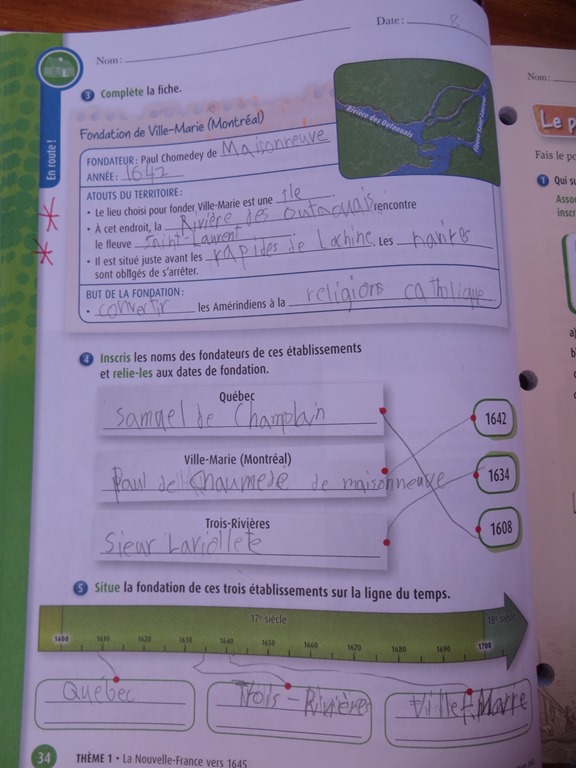 Date : 8
Nom :
3 Complète la fiche.
En route !
Fondation de Ville-Marie (Montréal)
Rivière des Outaouais
Fleuve Saint-Laurent
FONDATEUR : Paul Chomedey de Maisonneuve
ANNÉE : 1642
ATOUTS DU TERRITOIRE :
• Le lieu choisi pour fonder Ville-Marie est une île
• À cet endroit, la Rivière des Outaouais rencontre
le fleuve Saint-Laurent
• Il est situé juste avant les rapides de Lachine. Les navires
sont obligés de s'arrêter.
BUT DE LA FONDATION :
• convertir les Amérindiens à la religions catholique
4 Inscris les noms des fondateurs de ces établissements
et relie-les aux dates de fondation.
Québec
Samuel de Champlain
1642
Ville-Marie (Montréal)
Paul de Chaumede de maisonneuve
1634
Trois-Rivières
Sieur Laviellete
1608
5 Situe la fondation de ces trois établissements sur la ligne du temps.
17e siècle
18e siècle
1600 1610 1620 1630 1640 1650 1660 1670 1680 1690 1700
Québec
Trois-Rivières
Ville-Marie
34 THÈME 1 • La Nouvelle-France vers 1645
Nom :
Le p
Fais le po
1 Qui su
Assoc
inscr
a)
b)
c)
d)